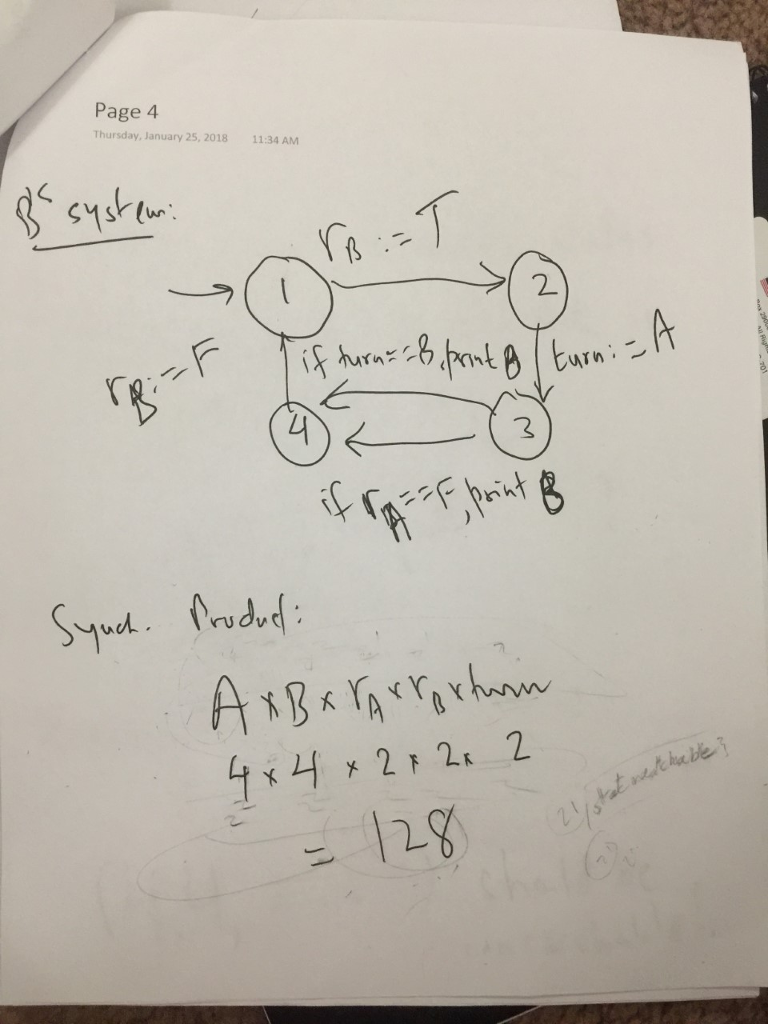 Page 4
Thursday, January 25, 2018 11:34 AM
B's system:
r_B := T
1
2
r_B := F
if turn==B, print B
turn := A
4
3
if r_A==F, print B
Synch. Product:
A × B × r_A × r_B × turn
4 × 4 × 2 × 2 × 2
= 128